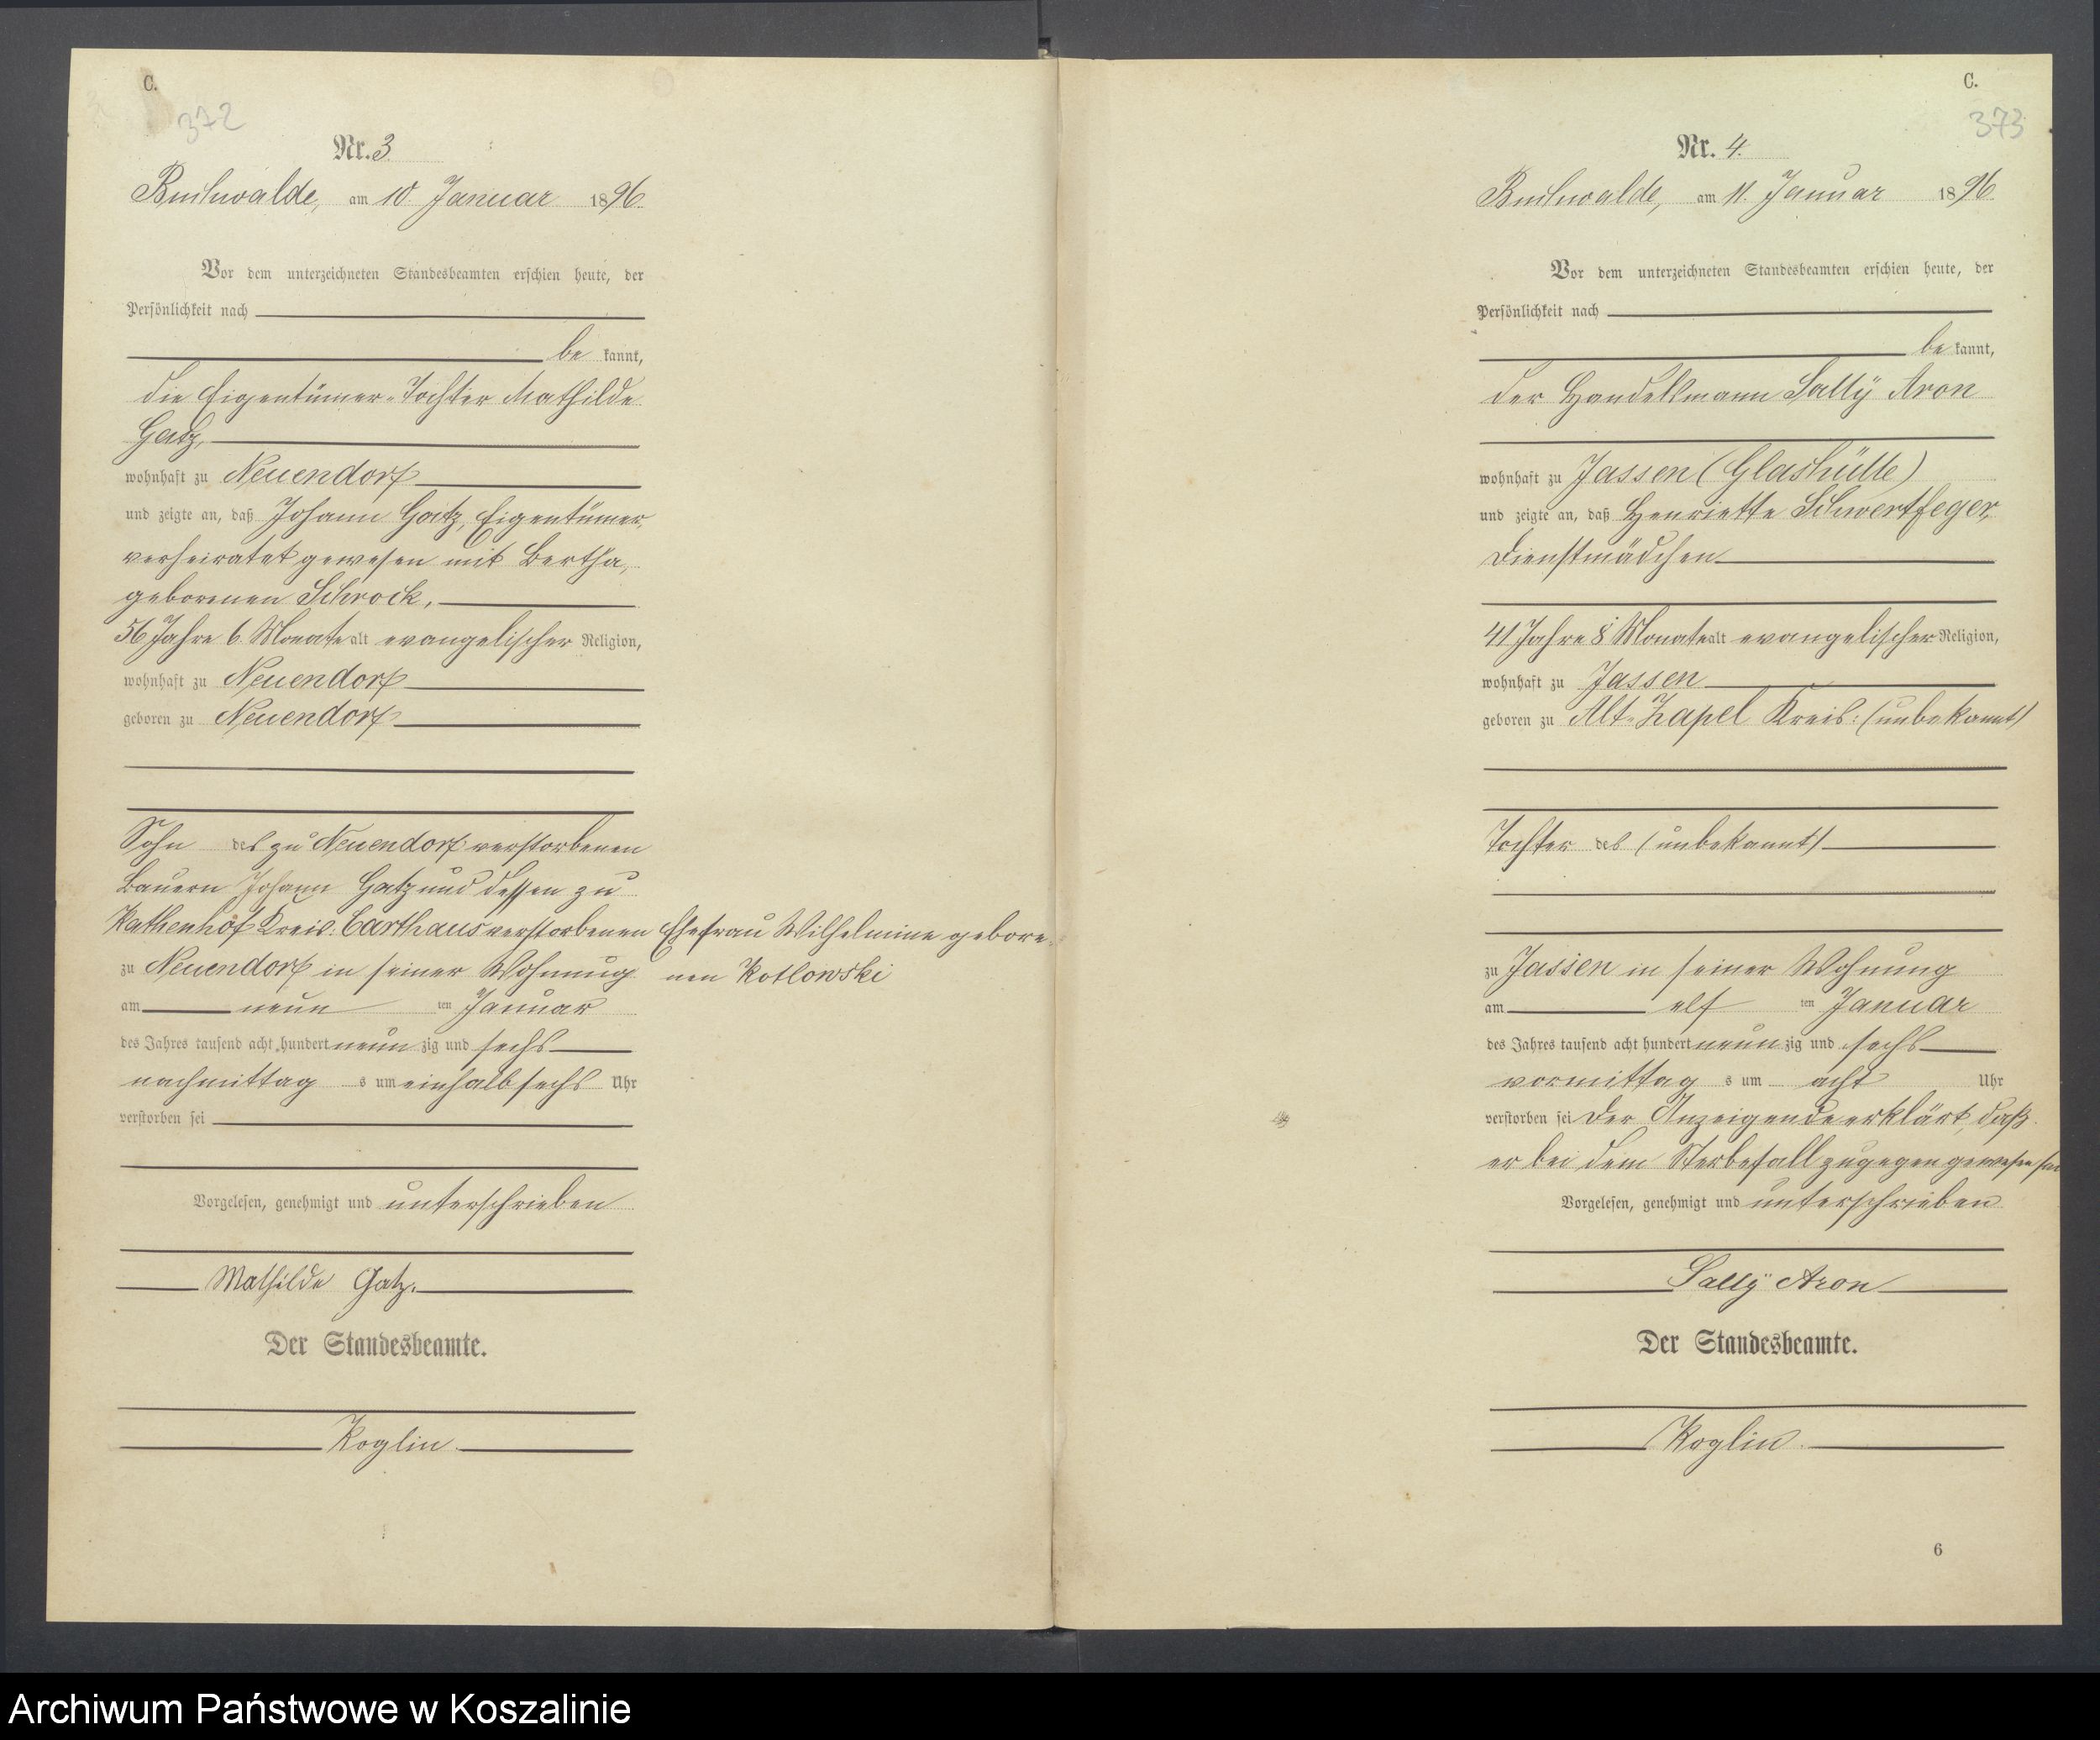 C.
372
Nr. 3
Buchwalde, am 10. Januar 1896.
Vor dem unterzeichneten Standesbeamten erschien heute, der
Persönlichkeit nach
be kannt,
die Eigentümer-Tochter Mathilde
Gatz,
wohnhaft zu Neuendorf
und zeigte an, daß Johann Gatz, Eigentümer,
verheiratet gewesen mit Bertha,
geborenen Schrock,
56 Jahre 6 Monate alt evangelischer Religion,
wohnhaft zu Neuendorf
geboren zu Neuendorf
Sohn des zu Neuendorf verstorbenen
Bauern Johann Gatz und dessen zu
Kathenhof Kreis: Carthaus verstorbenen Ehefrau Wilhelmine gebore-
nen Kotlowski
zu Neuendorf in seiner Wohnung
am neun ten Januar
des Jahres tausend acht hundert neun zig und sechs
nachmittag s um einhalb sechs Uhr
verstorben sei
Vorgelesen, genehmigt und unterschrieben
Mathilde Gatz.
Der Standesbeamte.
Koglin.
C.
373
Nr. 4.
Buchwalde, am 11. Januar 1896.
Vor dem unterzeichneten Standesbeamten erschien heute, der
Persönlichkeit nach
be kannt,
der Handelsmann Sally Aron
wohnhaft zu Jassen (Glashütte)
und zeigte an, daß Henriette Schwertfeger,
Dienstmädchen
41 Jahre 8 Monate alt evangelischer Religion,
wohnhaft zu Jassen
geboren zu Alt-Zapel Kreis: (unbekannt)
Tochter des (unbekannt)
zu Jassen in seiner Wohnung
am elf ten Januar
des Jahres tausend acht hundert neun zig und sechs
vormittag s um acht Uhr
verstorben sei Der Anzeigende erklärt, daß
er bei dem Sterbefall zugegen gewesen sei
Vorgelesen, genehmigt und unterschrieben
Sally Aron
Der Standesbeamte.
Koglin.
6
Archiwum Państwowe w Koszalinie